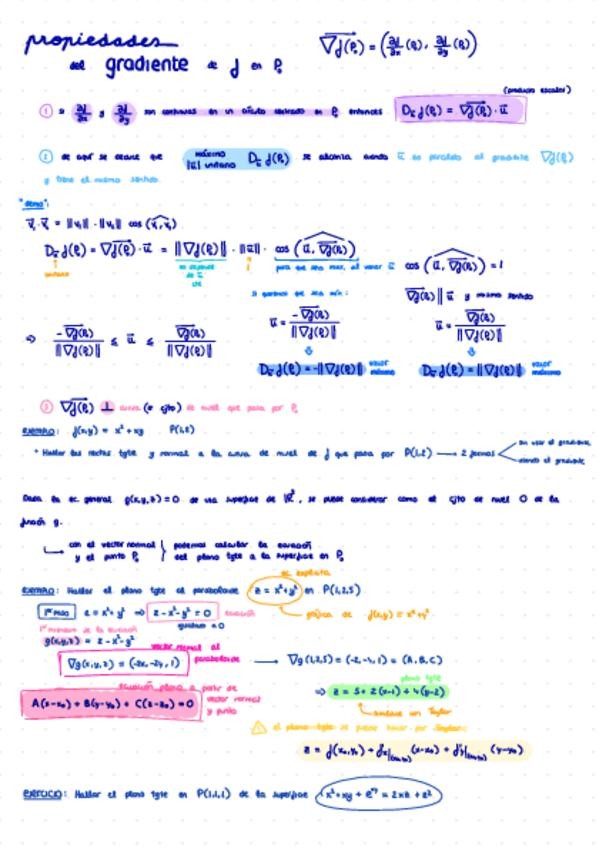 propiedades
del gradiente de f en P₀
∇f(P₀) = (∂f/∂x (P₀), ∂f/∂y (P₀))
(producto escalar)
① si ∂f/∂x y ∂f/∂y son continuas en un círculo centrado en P₀ entonces D_u f(P₀) = ∇f(P₀) · u
② de aquí se deduce que máximo |u| unitario D_u f(P₀) se alcanza cuando u es paralelo al gradiente ∇f(P₀)
y tiene el mismo sentido.
"demo":
v₁ · v₂ = ||v₁|| · ||v₂|| cos (v₁, v₂)
D_u f(P₀) = ∇f(P₀) · u = ||∇f(P₀)|| · ||u|| · cos (u, ∇f(P₀))
cos (u, ∇f(P₀)) = 1
unitario
no depende de u
1
para que sea max, al variar u
si queremos que sea mín:
∇f(P₀) || u y mismo sentido
⇒ -∇f(P₀)/||∇f(P₀)|| ≤ u ≤ ∇f(P₀)/||∇f(P₀)||
u = -∇f(P₀)/||∇f(P₀)||
u = ∇f(P₀)/||∇f(P₀)||
D_u f(P₀) = -||∇f(P₀)|| valor mínimo
D_u f(P₀) = ||∇f(P₀)|| valor máximo
③ ∇f(P₀) ⊥ curva (o cjto) de nivel que pasa por P₀
EJEMPLO: f(x,y) = x² + xy P(1,2)
* Hallar las rectas tgte y normal a la curva de nivel de f que pasa por P(1,2) → 2 formas
sin usar el gradiente
usando el gradiente
Dada la ec. general g(x,y,z) = 0 de una superficie de ℝ³, se puede considerar como el cjto de nivel 0 de la
función g.
con el vector normal y el punto P₀ } podemos calcular la ecuación del plano tgte a la superficie en P₀
ec. explícita
EJEMPLO: Hallar el plano tgte al paraboloide z = x² + y² en P(1,2,5)
1er paso z = x² + y² ⇒ z - x² - y² = 0 ecuación
gráfica de f(x,y) = x² + y²
igualado a 0
1er miembro de la ecuación
g(x,y,z) = z - x² - y²
vector normal al paraboloide
∇g(x,y,z) = (-2x, -2y, 1)
→ ∇g(1,2,5) = (-2, -4, 1) = (A, B, C)
ecuación plano a partir de vector normal y punto
plano tgte
A(x-x₀) + B(y-y₀) + C(z-z₀) = 0
⇒ z = 5 + 2(x-1) + 4(y-2)
Taylor
el plano tgte se puede hallar por Taylor:
z = f(x₀,y₀) + f'x|(x₀,y₀) (x-x₀) + f'y|(x₀,y₀) (y-y₀)
EJERCICIO: Hallar el plano tgte en P(1,1,1) de la superficie